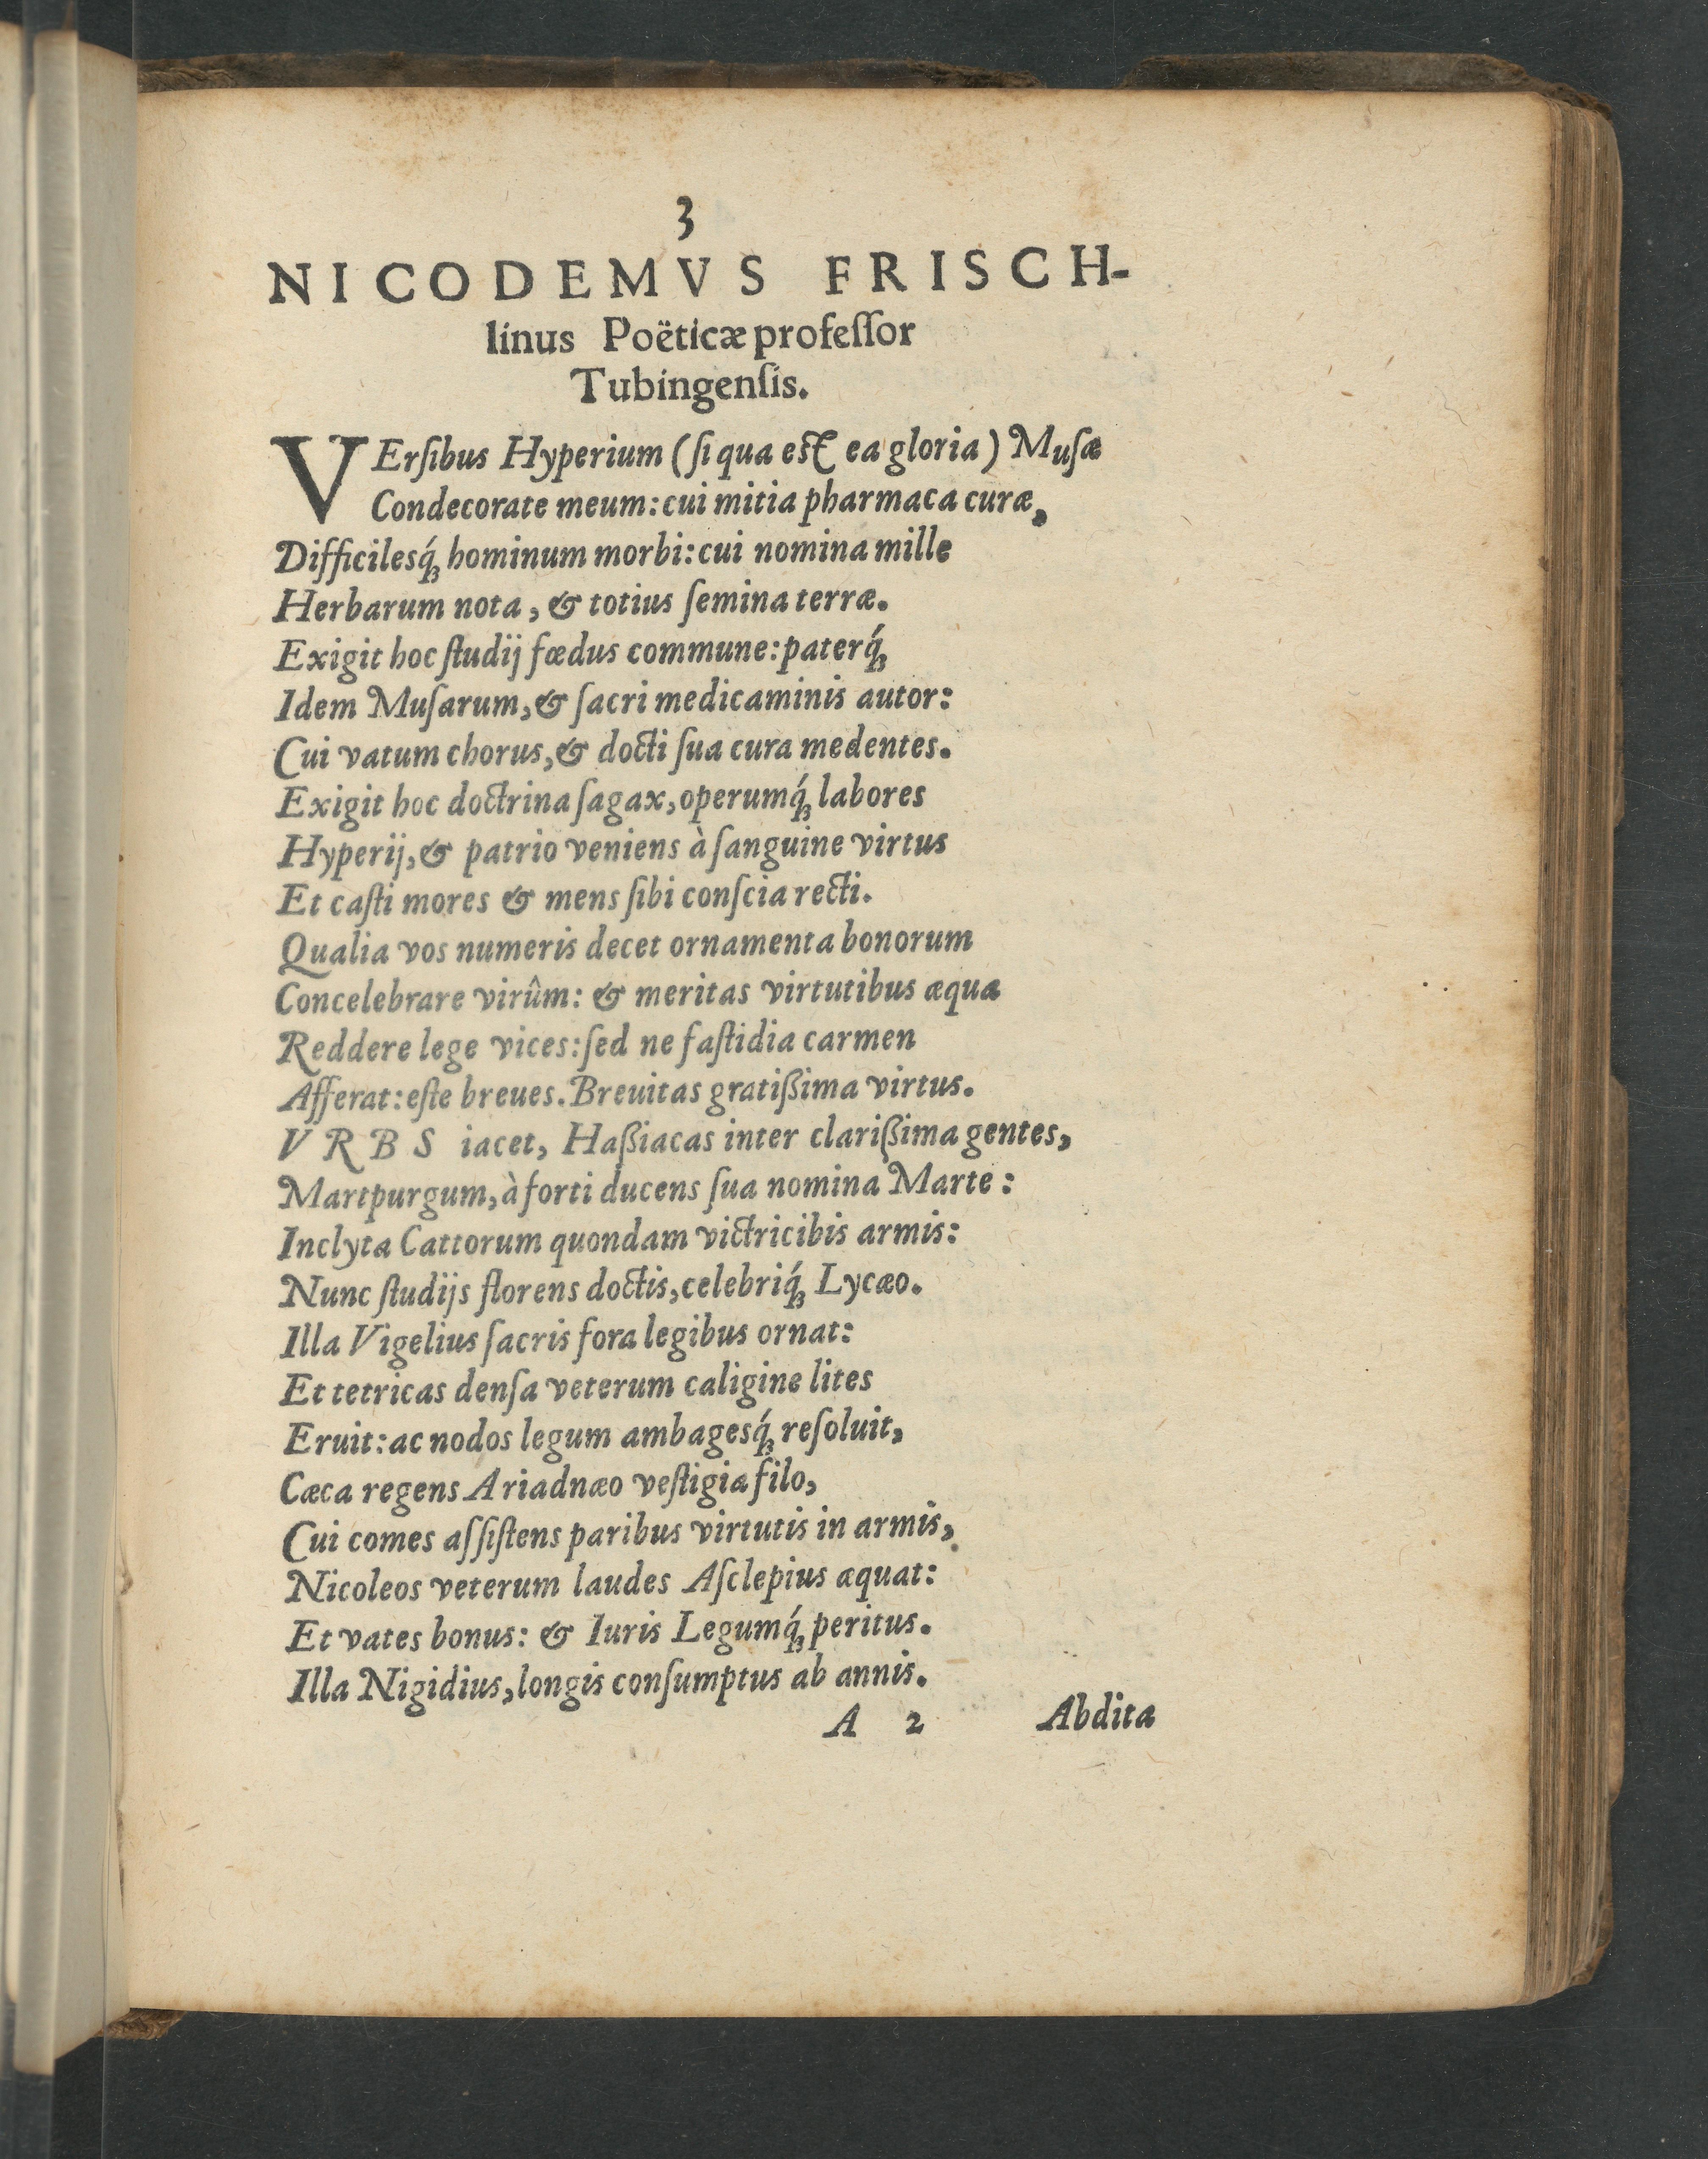 3
NICODEMVS FRISCH-
linus Poëticæ professor
Tubingensis.
VErſibus Hyperium (ſi qua est ea gloria) Muſæ
Condecorate meum: cui mitia pharmaca curæ,
Difficilesq́ꝫ hominum morbi: cui nomina mille
Herbarum nota, & totius ſemina terræ.
Exigit hoc ſtudij fœdus commune: paterq́ꝫ
Idem Muſarum, & ſacri medicaminis autor:
Cui vatum chorus, & docti ſua cura medentes.
Exigit hoc doctrina ſagax, operumq́ꝫ labores
Hyperij, & patrio veniens à ſanguine virtus
Et caſti mores & mens ſibi conſcia recti.
Qualia vos numeris decet ornamenta bonorum
Concelebrare virûm: & meritas virtutibus æqua
Reddere lege vices: ſed ne faſtidia carmen
Afferat: eſte breues. Breuitas gratißima virtus.
VRBS iacet, Haßiacas inter clarißima gentes,
Martpurgum, à forti ducens ſua nomina Marte:
Inclyta Cattorum quondam victricibis armis:
Nunc ſtudijs florens doctis, celebriq́ꝫ Lycæo.
Illa Vigelius ſacris fora legibus ornat:
Et tetricas denſa veterum caligine lites
Eruit: ac nodos legum ambagesq́ꝫ reſoluit,
Cæca regens Ariadnæo veſtigia filo,
Cui comes aſſiſtens paribus virtutis in armis,
Nicoleos veterum laudes Aſclepius æquat:
Et vates bonus: & Iuris Legumq́ꝫ peritus.
Illa Nigidius, longis conſumptus ab annis.
A 2 Abdita